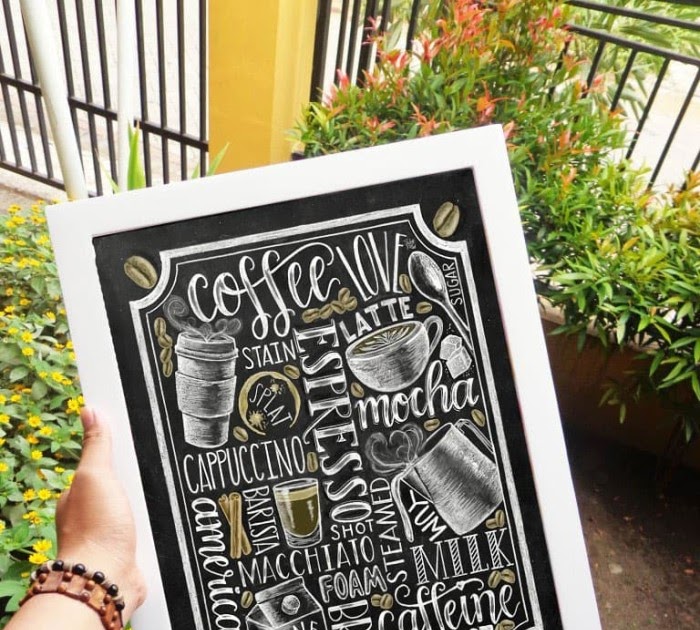 coffee LOVE
the
SUGAR
LATTE
STAIN
SPLAT
ESPRESSO
mocha
CAPPUCCINO
americo
BARISTA
SHOT
STEAMED
YUM
MACCHIATO
MILK
FOAM
caffeine